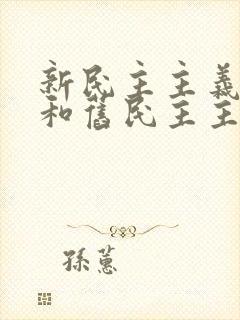 新民主主義
和舊民主主
孫蕙